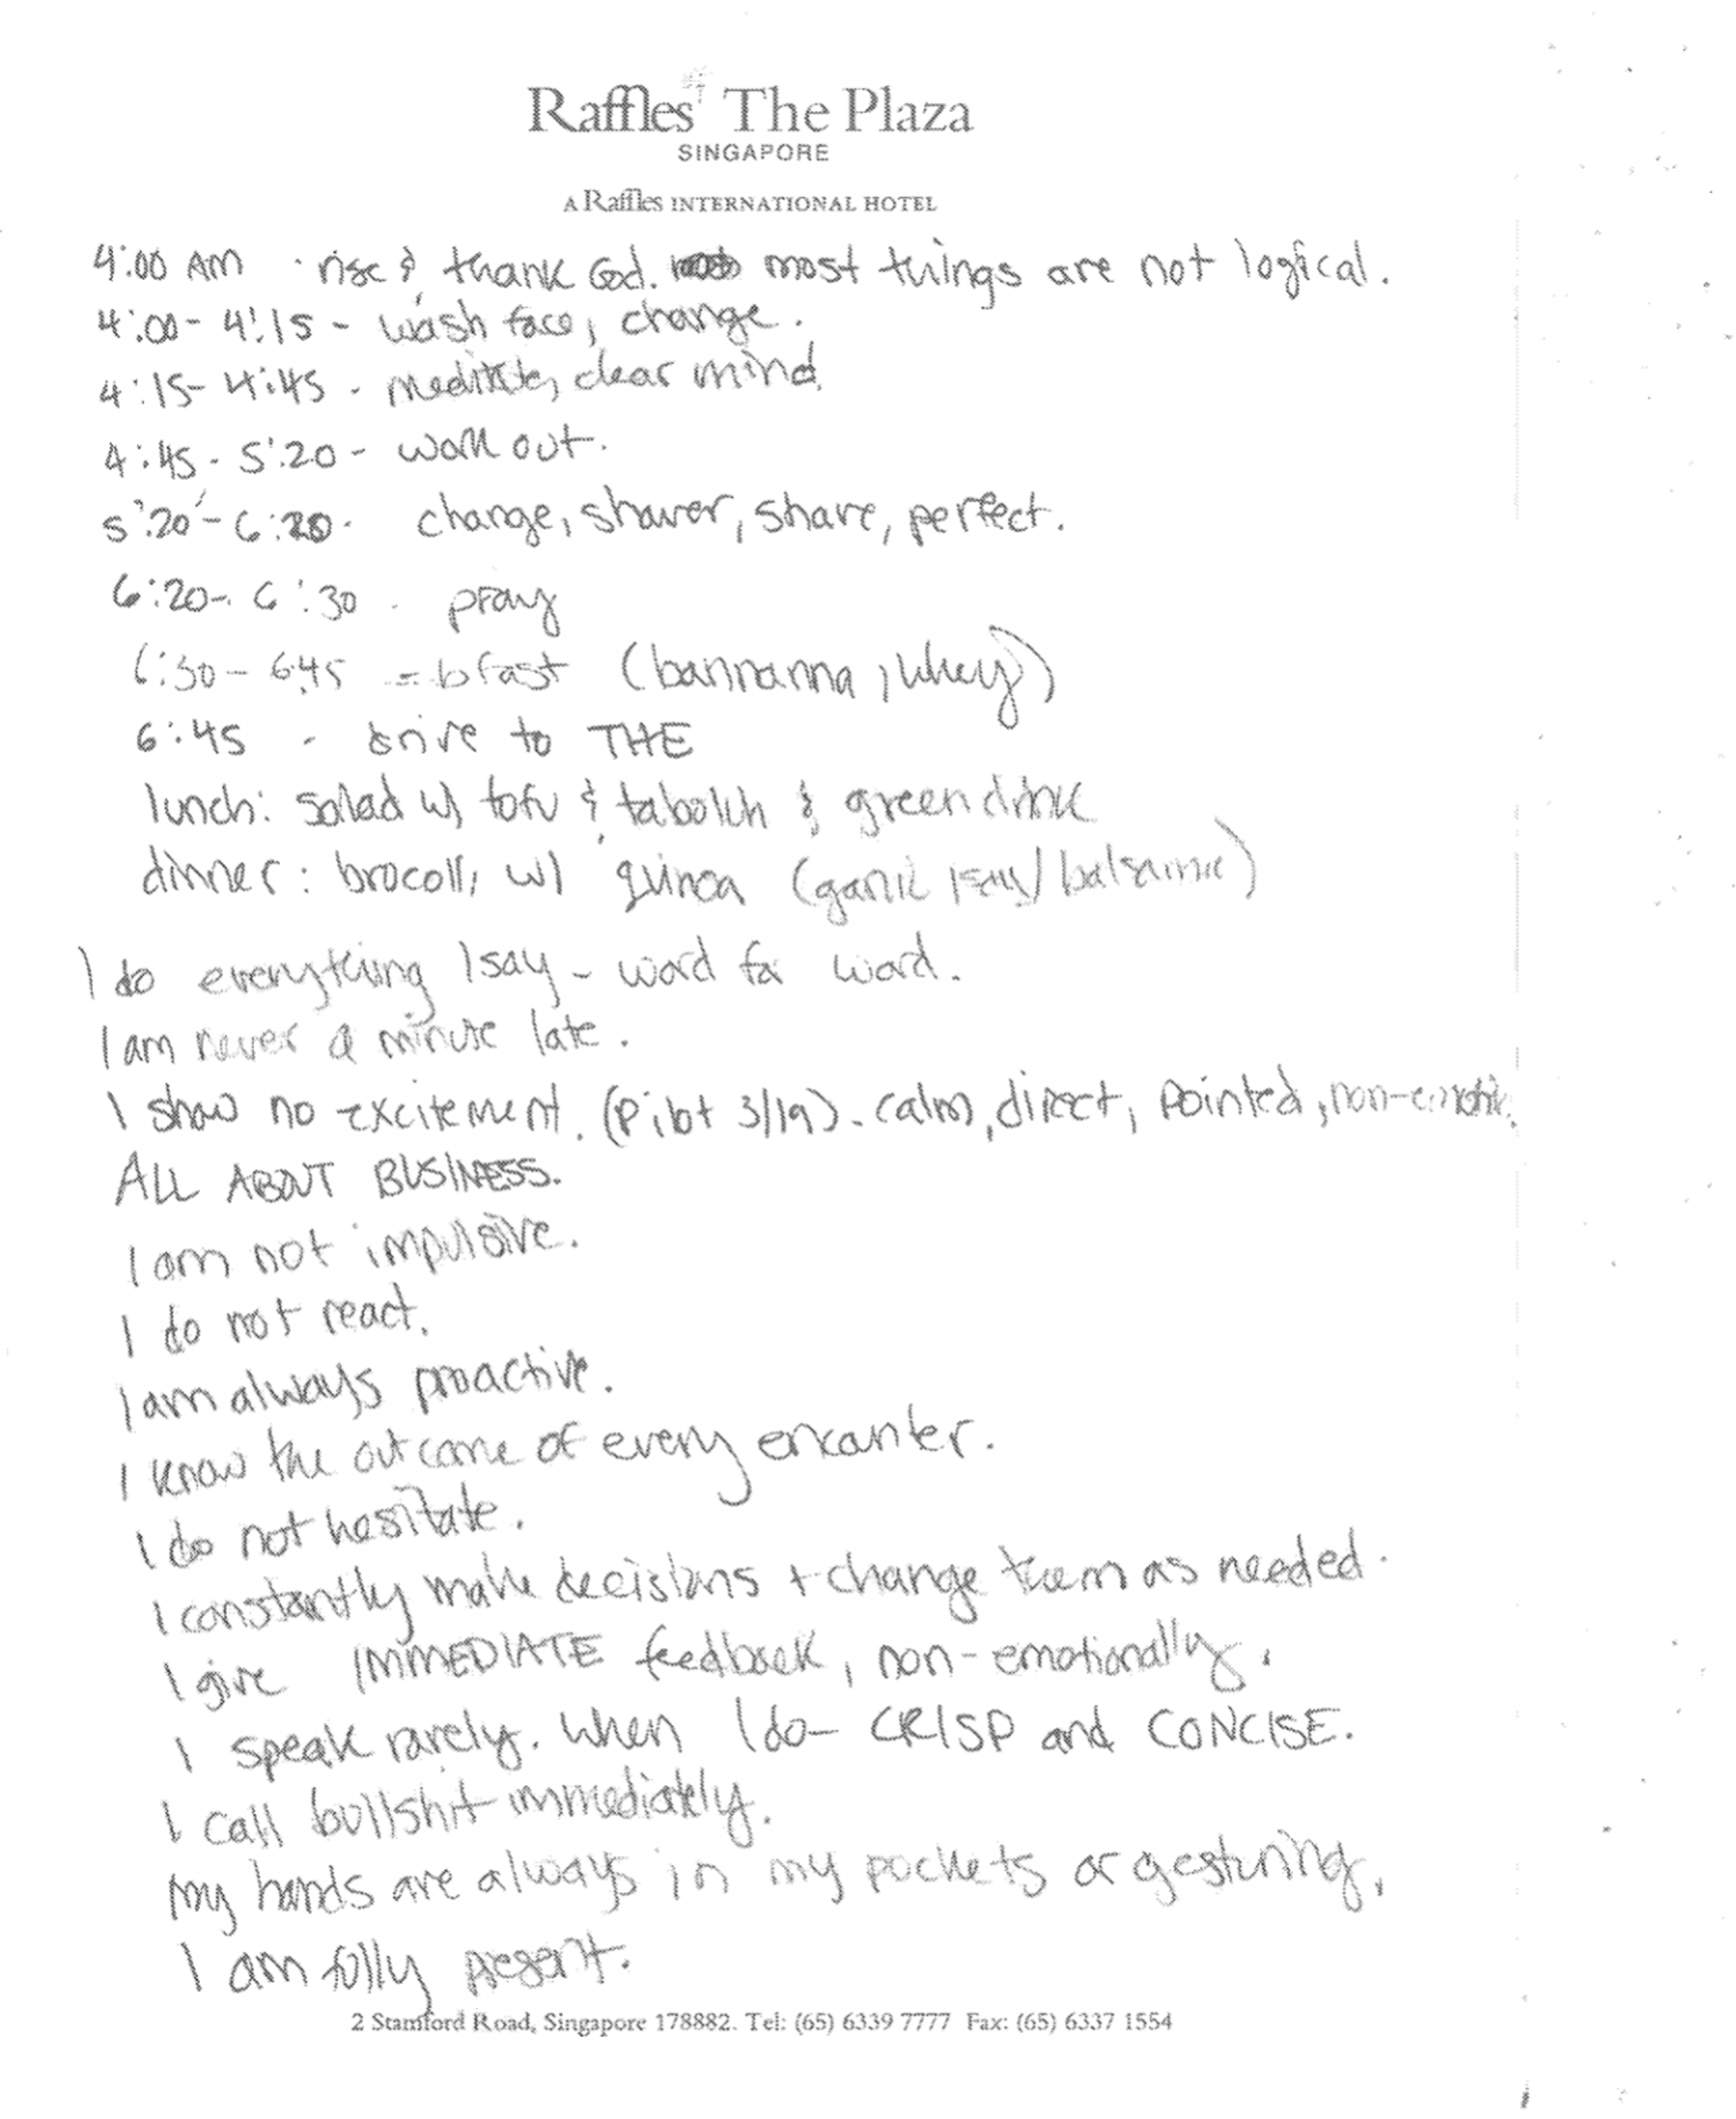 Raffles The Plaza
SINGAPORE
A Raffles INTERNATIONAL HOTEL
4:00 AM · rise & thank God. most things are not logical.
4:00 - 4:15 - wash face, change.
4:15 - 4:45 - meditate, clear mind.
4:45 - 5:20 - work out.
5:20 - 6:20 - change, shower, shave, perfect.
6:20 - 6:30 - pray
6:30 - 6:45 = bfast (bannanna, whey)
6:45 - drive to THE
lunch: salad w/ tofu & & green drink
dinner: brocolli w/ quinoa (/ balsamic)
I do everything I say - word for word.
I am never a minute late.
I show no excitement. (Pilot 3/19). calm, direct, pointed,
ALL ABOUT BUSINESS.
I am not impulsive.
I do not react.
I am always proactive.
I know the outcome of every encounter.
I do not hesitate.
I constantly make decisions + change them as needed.
I give IMMEDIATE feedback, non-emotionally.
I speak rarely. When I do - CRISP and CONCISE.
I call bullshit immediately.
My hands are always in my pockets or gesturing.
I am fully present.
2 Stamford Road, Singapore 178882. Tel: (65) 6339 7777 Fax: (65) 6337 1554